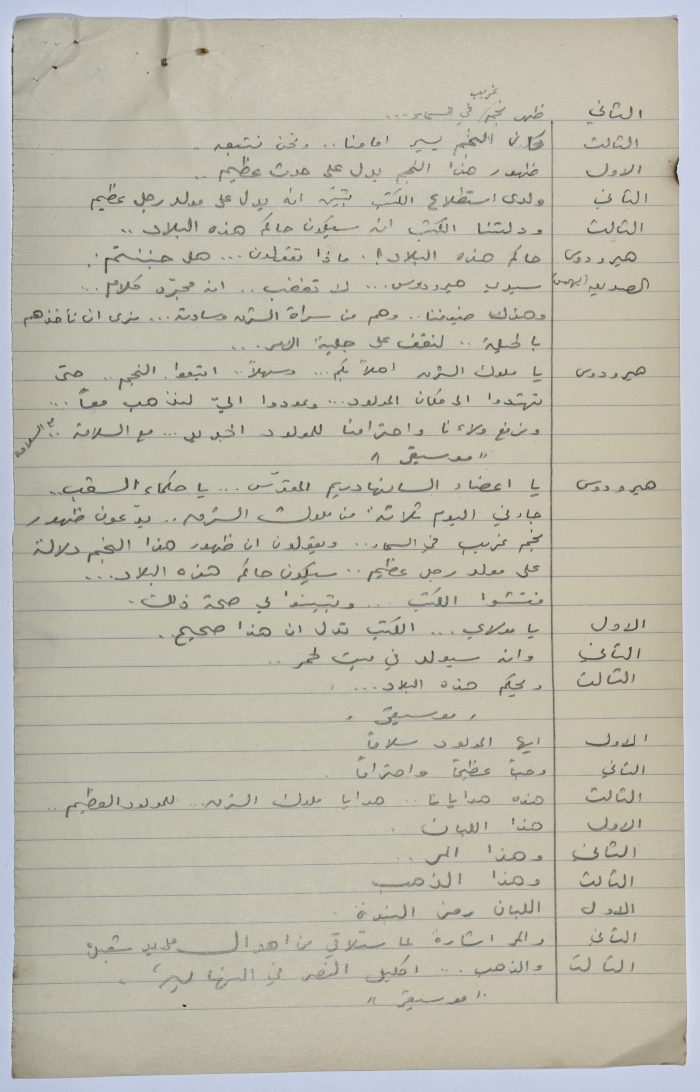 الثاني ظهر نجم غريب في السماء...
الثالث كان النجم يسير امامنا.. ونحن نتبعه.
الاول ظهور هذا النجم يدل على حدث عظيم..
الثاني ولدى استطلاع الكتب تبيّن انه يدل على مولد رجل عظيم
الثالث ودلتنا الكتب انه سيكون حاكم هذه البلاد..
هيرودوس حاكم هذه البلاد؟!. ماذا تقولون... هل جننتم؟.
الصديق (يهمس) سيدي هيرودوس... لا تغضب.. انه مجرّد كلام...
وهذك ضيوفنا.. وهم من سراة الشرق وسادته... نرى ان نأخذهم
بالحيلة.. لنقف على جلية الامر...
هيرودوس يا ملوك الشرق اهلاً بكم... وسهلاً.. اتبعوا النجم.. حتى
تهتدوا الى مكان المولود... وعودوا اليّ لنذهب معاً...
ونرفع ولاءنا واحترامنا للمولود الجديد... مع السلامة.. مع السلامة
"موسيقى"
هيرودوس يا اعضاء السانهادريم المقدّس... يا حكماء الشعب..
جاءني اليوم ثلاثة من ملوك الشرق.. يدّعون ظهور
نجم غريب في السماء.. ويقولون ان ظهور هذا النجم دلالة
على مولد رجل عظيم.. سيكون حاكم هذه البلاد...
فتشوا الكتب... وتبينوا لي صحة ذلك.
الاول يا مولاي... الكتب تدل ان هذا صحيح..
الثاني وانه سيولد في بيت لحم..
الثالث ويحكم هذه البلاد...
"موسيقى"
الاول ايها المولود سلاماً
الثاني وحباً عظيماً واحتراماً
الثالث هذه هدايانا.. هدايا ملوك الشرق... للمولود العظيم..
الاول هذا اللبان.
الثاني وهذا المر..
الثالث وهذا الذهب
الاول اللبان رمز البنوة
الثاني والمر اشارة لما ستلاقي من اهوال
الثالث والذهب... اكليل النصر في النهاية.
"موسيقى"